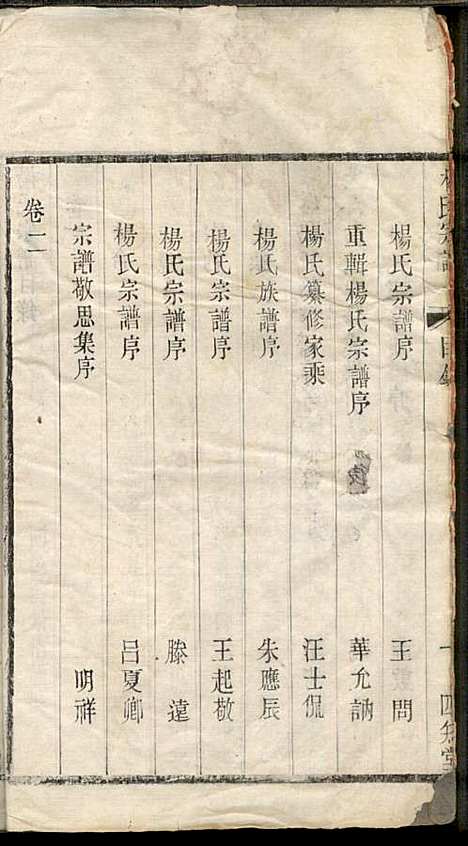 楊氏宗譜
目錄
楊氏宗譜序 王問
重輯楊氏宗譜序 華允訥
楊氏纂修家乘 汪士侃
楊氏族譜序 朱應辰
楊氏宗譜序 王起敬
楊氏宗譜序 滕遠
楊氏宗譜序 呂夏卿
宗譜敬思集序 明祥
卷二